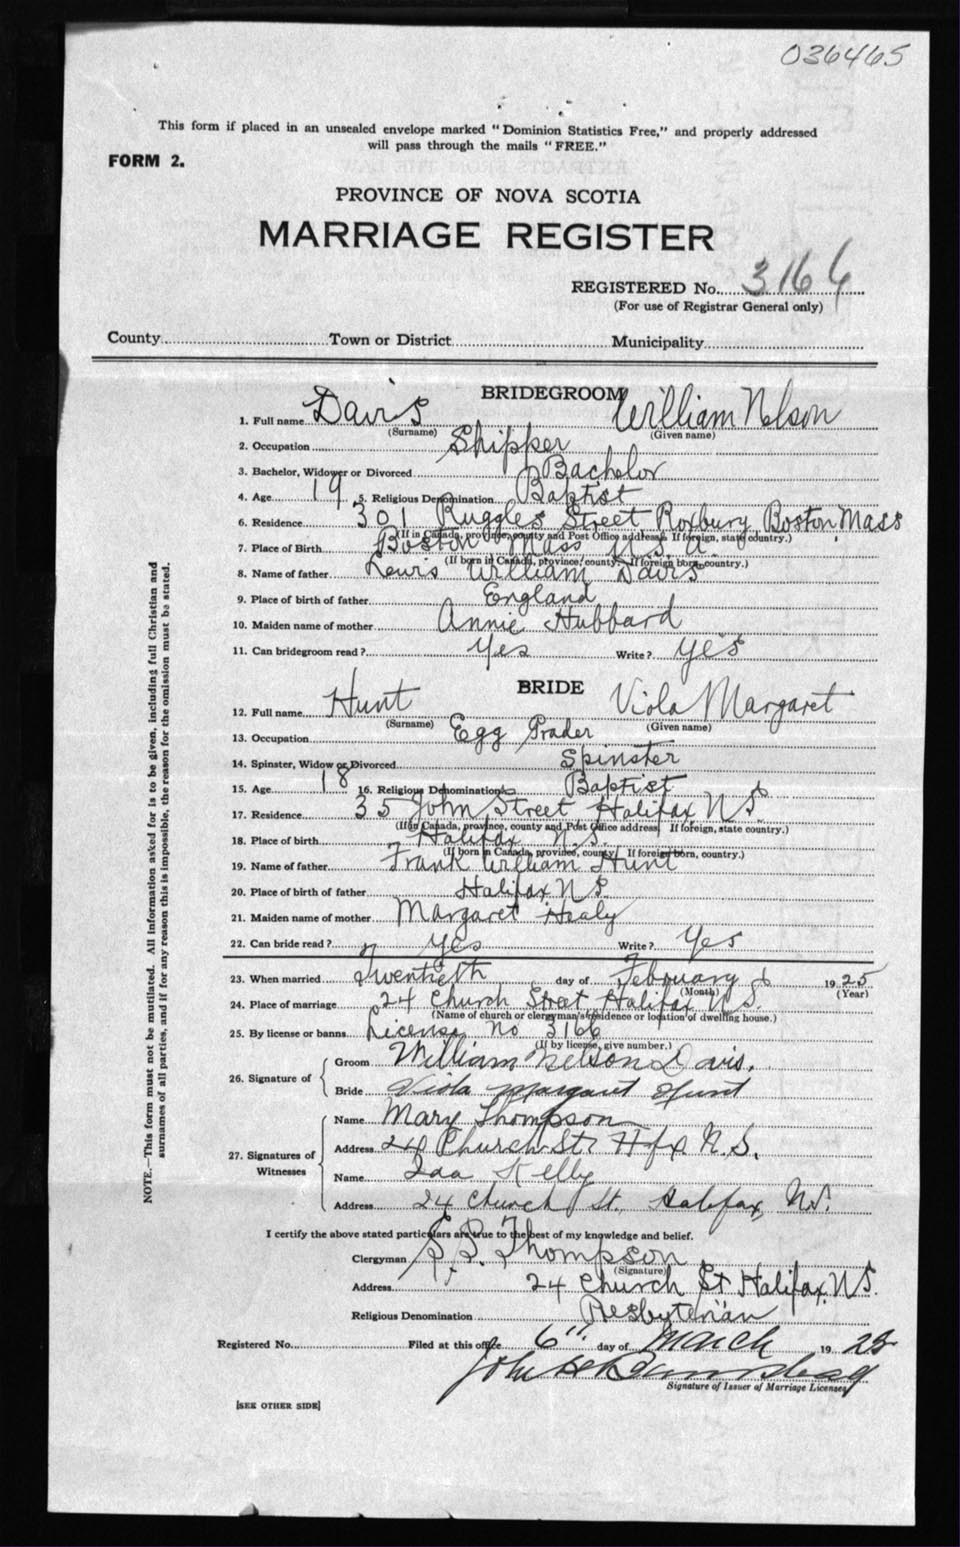 036465
This form if placed in an unsealed envelope marked "Dominion Statistics Free," and properly addressed
will pass through the mails "FREE."
FORM 2.
PROVINCE OF NOVA SCOTIA
MARRIAGE REGISTER
REGISTERED No. 3166
(For use of Registrar General only)
County Town or District Municipality
BRIDEGROOM
1. Full name Davis William Nelson
(Surname) (Given name)
2. Occupation Shipper
3. Bachelor, Widower or Divorced Bachelor
4. Age 19 5. Religious Denomination Baptist
6. Residence 301 Ruggles Street Roxbury Boston Mass
(If in Canada, province, county and Post Office address. If foreign, state country.)
7. Place of Birth Boston Mass U.S.A.
(If born in Canada, province, county. If foreign born, country.)
8. Name of father Lewis William Davis
9. Place of birth of father England
10. Maiden name of mother Annie Hubbard
11. Can bridegroom read? Yes Write? Yes
BRIDE
12. Full name Hunt Viola Margaret
(Surname) (Given name)
13. Occupation Egg Grader
14. Spinster, Widow or Divorced Spinster
15. Age 18 16. Religious Denomination Baptist
17. Residence 35 John Street Halifax N S
(If in Canada, province, county and Post Office address. If foreign, state country.)
18. Place of birth Halifax N.S.
(If born in Canada, province, county. If foreign born, country.)
19. Name of father Frank William Hunt
20. Place of birth of father Halifax N S
21. Maiden name of mother Margaret Healy
22. Can bride read? Yes Write? Yes
23. When married Twentieth day of February 1925
(Month) (Year)
24. Place of marriage 24 Church Street Halifax N S.
(Name of church or clergyman's residence or location of dwelling house.)
25. By license or banns License No 3166
(If by license, give number.)
26. Signature of Groom William Nelson Davis.
Bride Viola Margaret Hunt
27. Signatures of Witnesses Name Mary Thompson
Address 24 Church St. Hfx N.S.
Name Ida Kelly
Address 24 Church St. Halifax, N.S.
I certify the above stated particulars are true to the best of my knowledge and belief.
Clergyman Thompson
(Signature)
Address 24 Church St Halifax, N S.
Religious Denomination Presbyterian
Registered No. Filed at this office 6" day of March 1925
John
Signature of Issuer of Marriage Licenses
[SEE OTHER SIDE]
NOTE.—This form must not be mutilated. All information asked for is to be given, including full Christian and
surnames of all parties, and if for any reason this is impossible, the reason for the omission must be stated.